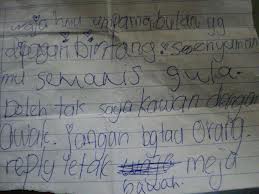 wajahmu umpama bulan yg
dipagari bintang. Senyuman
mu semanis gula.
Boleh tak saya kawan dengan
awak. jangan bgtau orang.
reply letak meja
bawah.